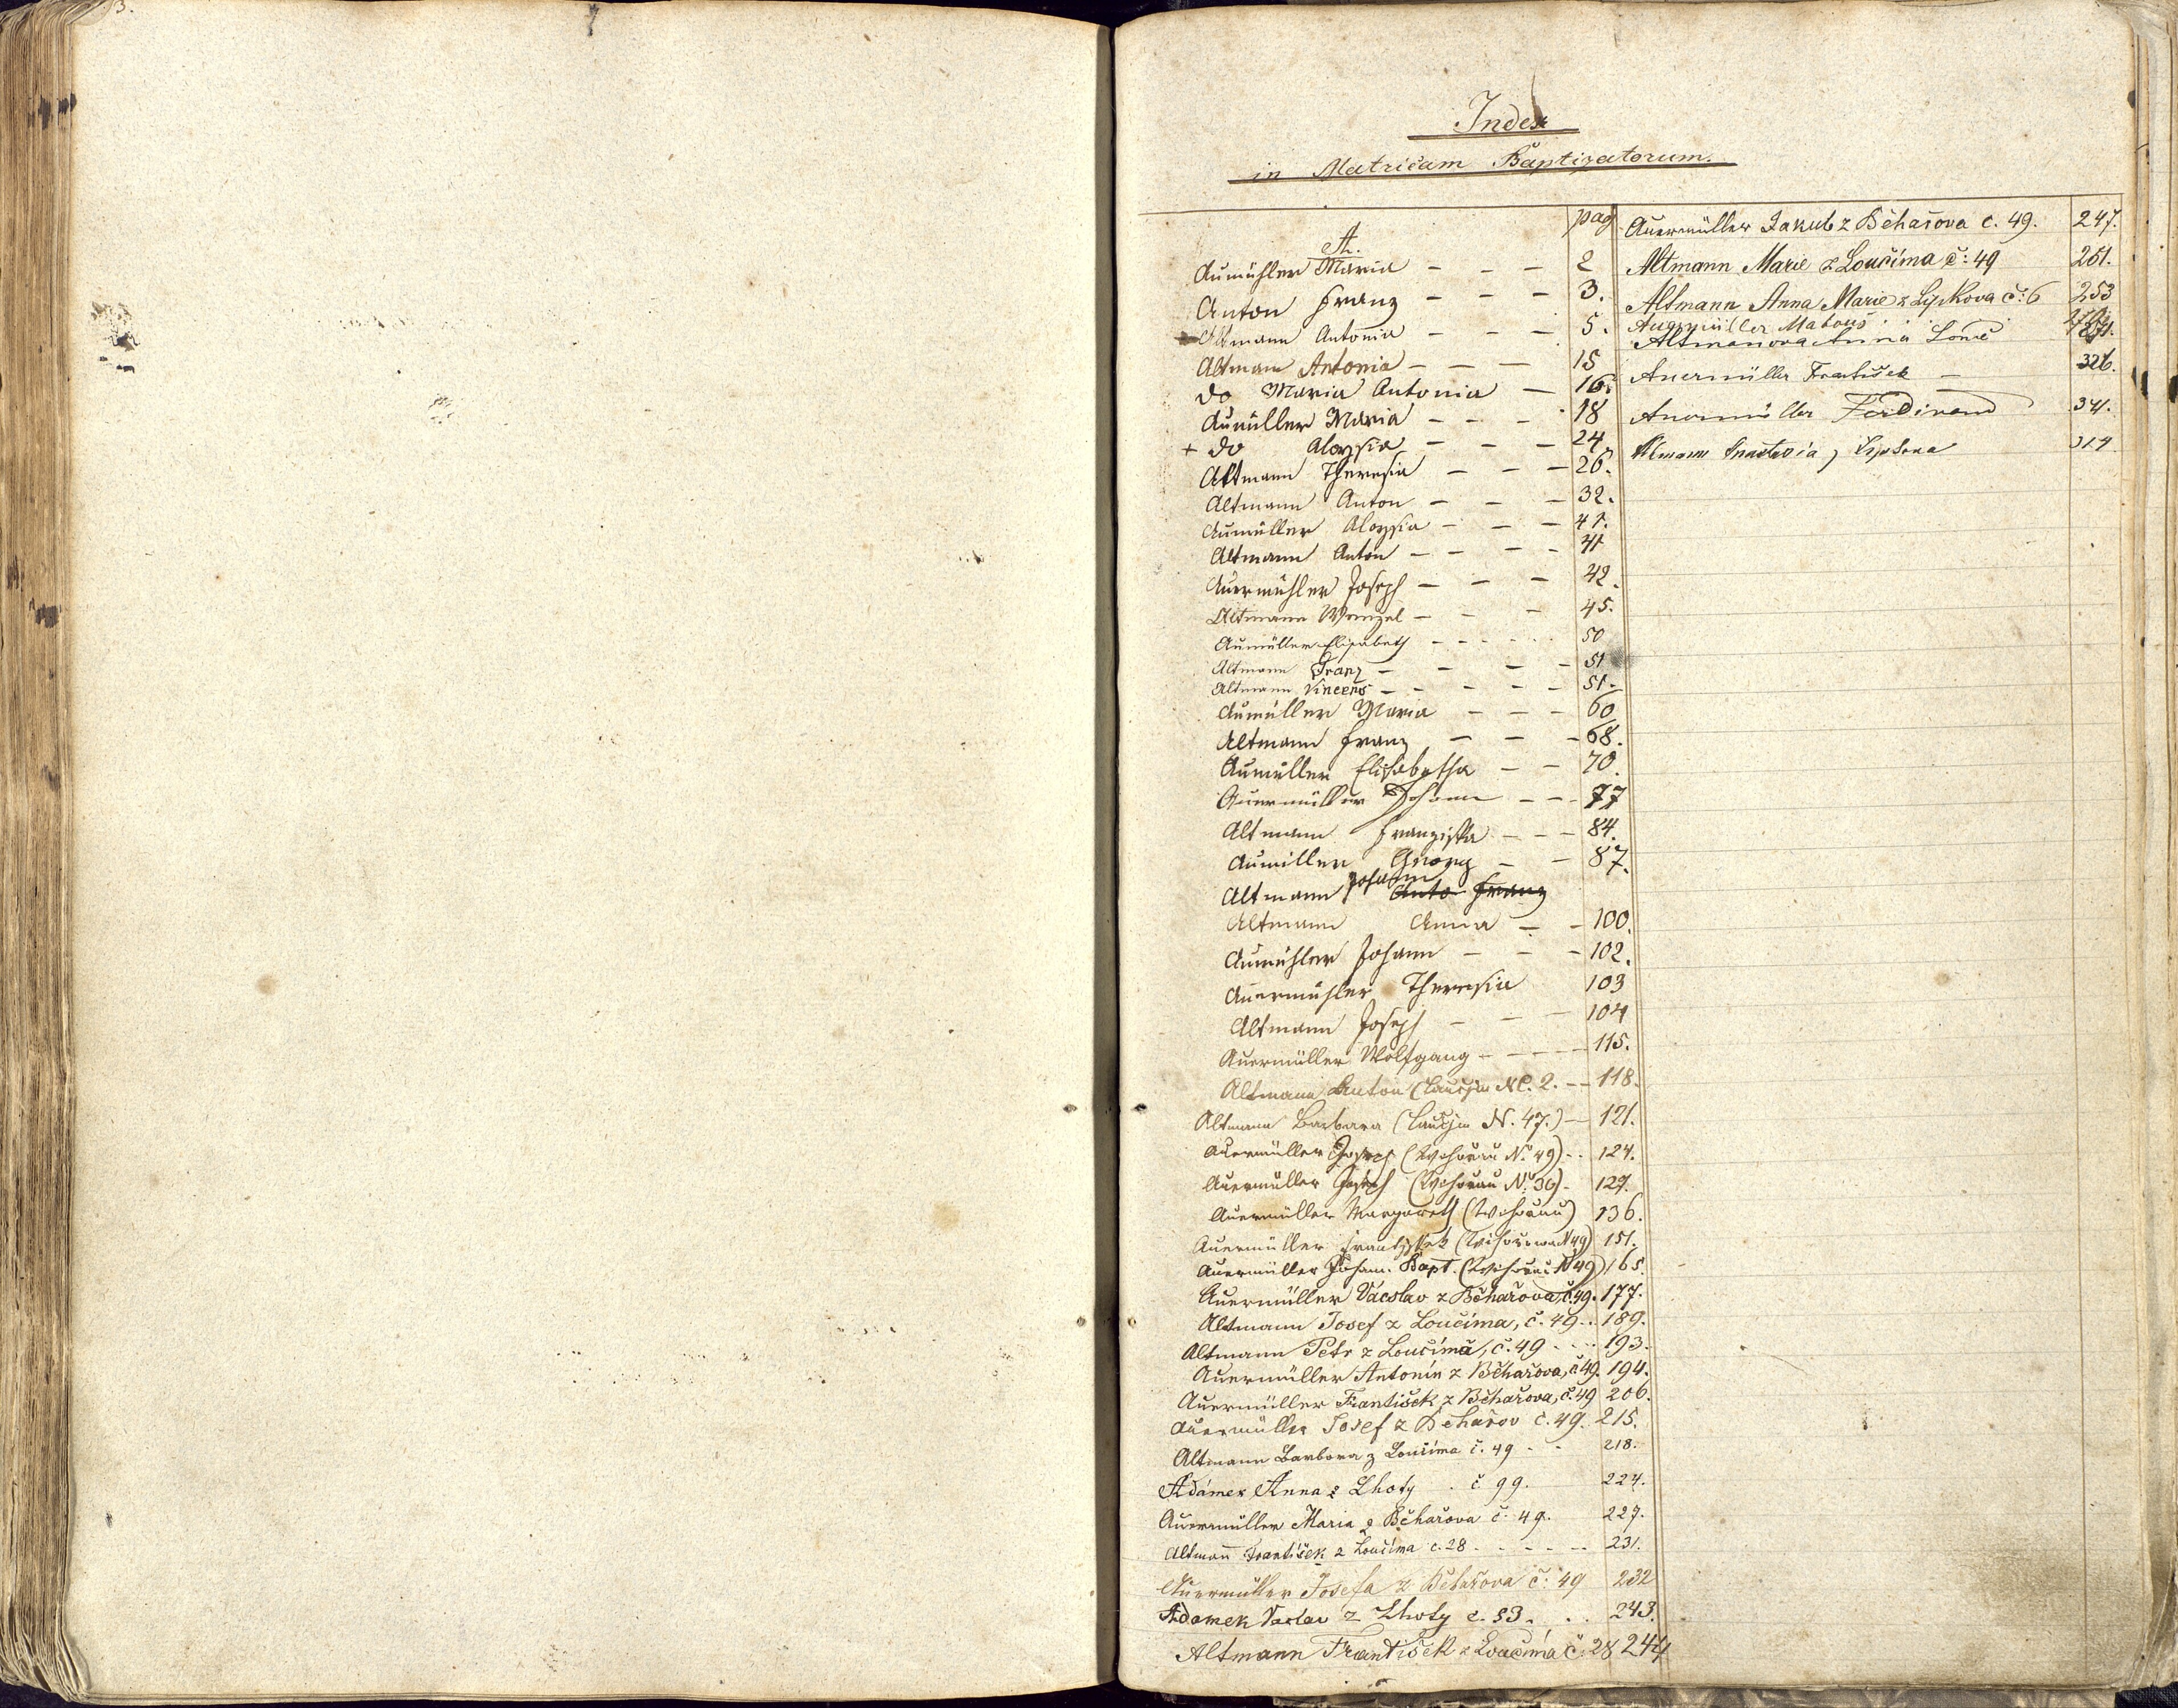 3.
Index
in Matricam Baptizatorum.
pag
A.
Aumühler Maria - - - 2
Anton Franz - - - 3.
Altmann Antonia - - - 5.
Altmann Antonia - - - 15
do Maria Antonia - 16.
Aumüller Maria - - - 18
+ do Aloysia - - - 24.
Altmann Theresia - - - 26.
Altmann Anton - - - 32.
Aumüller Aloysia - - - 41.
Altmann Anton - - - - 41
Auermühler Joseph - - - 42.
Altmann Wenzel - - - 45.
Aumüller Elisabeth - - - - 50
Altmann Franz - - - - 51
Altmann Vincens - - - - - 51.
Aumüller Maria - - - 60
Altmann Franz - - - 68.
Aumüller Elisabetha - - 70.
Auermüller Johann - - - 77
Altmann Franziska - - - 84.
Aumiller Georg - - 87.
Altmann Johann Anto Franz
Altmann Anna - - 100.
Aumühler Johann - - - 102.
Auermühler Theresia 103
Altmann Joseph - - - 104
Auermüller Wolfgang - - - - 115.
Altmann Anton (Lauczim NC. 2. - - 118.
Altmann Barbara (Lauczim N. 47.) - 121.
Auermüller Joseph (N. 49) - - 124.
Auermüller Joseph (N. 36) - 127.
Auermüller Margareth 136.
Auermüller Frantissek (N 49) 151.
Auermüller Johann Bapt. (N 49) 165.
Auermüller Vácslav z Běhařova, č. 49. 177.
Altmann Josef z Loučima, č. 49 - - 189.
Altmann Petr z Loučima, č. 49 - - - 193.
Auermüller Antonín z Běhařova, č. 49. 194.
Auermüller František z Běhařova, č. 49 206.
Auermüller Josef z Běhařov č. 49. 215.
Altmann Barbora z Loučima č. 49 - - 218.
Adámek Anna z Lhoty č 99. 224.
Auermüller Maria z Běhařova č. 49. 227.
Altmann František z Loučima č. 28 - - - - 231.
Auermüller Josefa z Běhařova č. 49 232
Adamek Vaclav z Lhoty č. 53. . . 243.
Altmann František z Loučima č. 28 244
Auermüller Jakub z Běhařova č. 49. 247.
Altmann Marie z Loučima č. 49 251.
Altmann Anna Marie z Lypkova č. 6 253
Auermüller Matouš
Altmanova Anna
Auermüller František - 326.
Auermüller Ferdinand 341.
Altmann